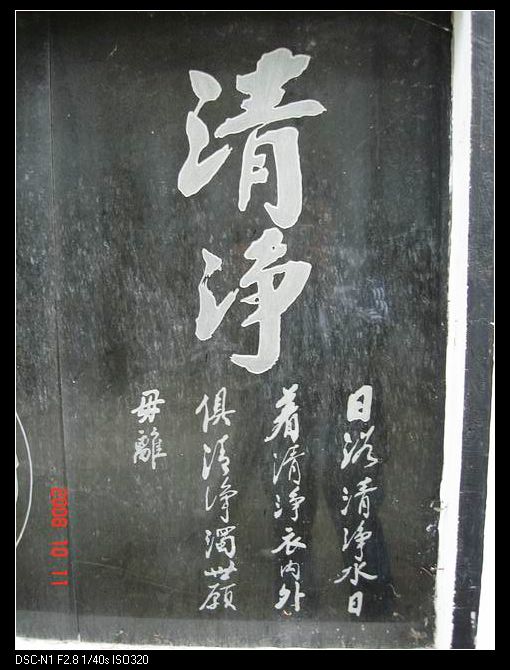 清净
日浴清浄水日
着清浄衣内外
俱清浄濁世願
毋離
2008 10 11
DSC-N1 F2.8 1/40s ISO320